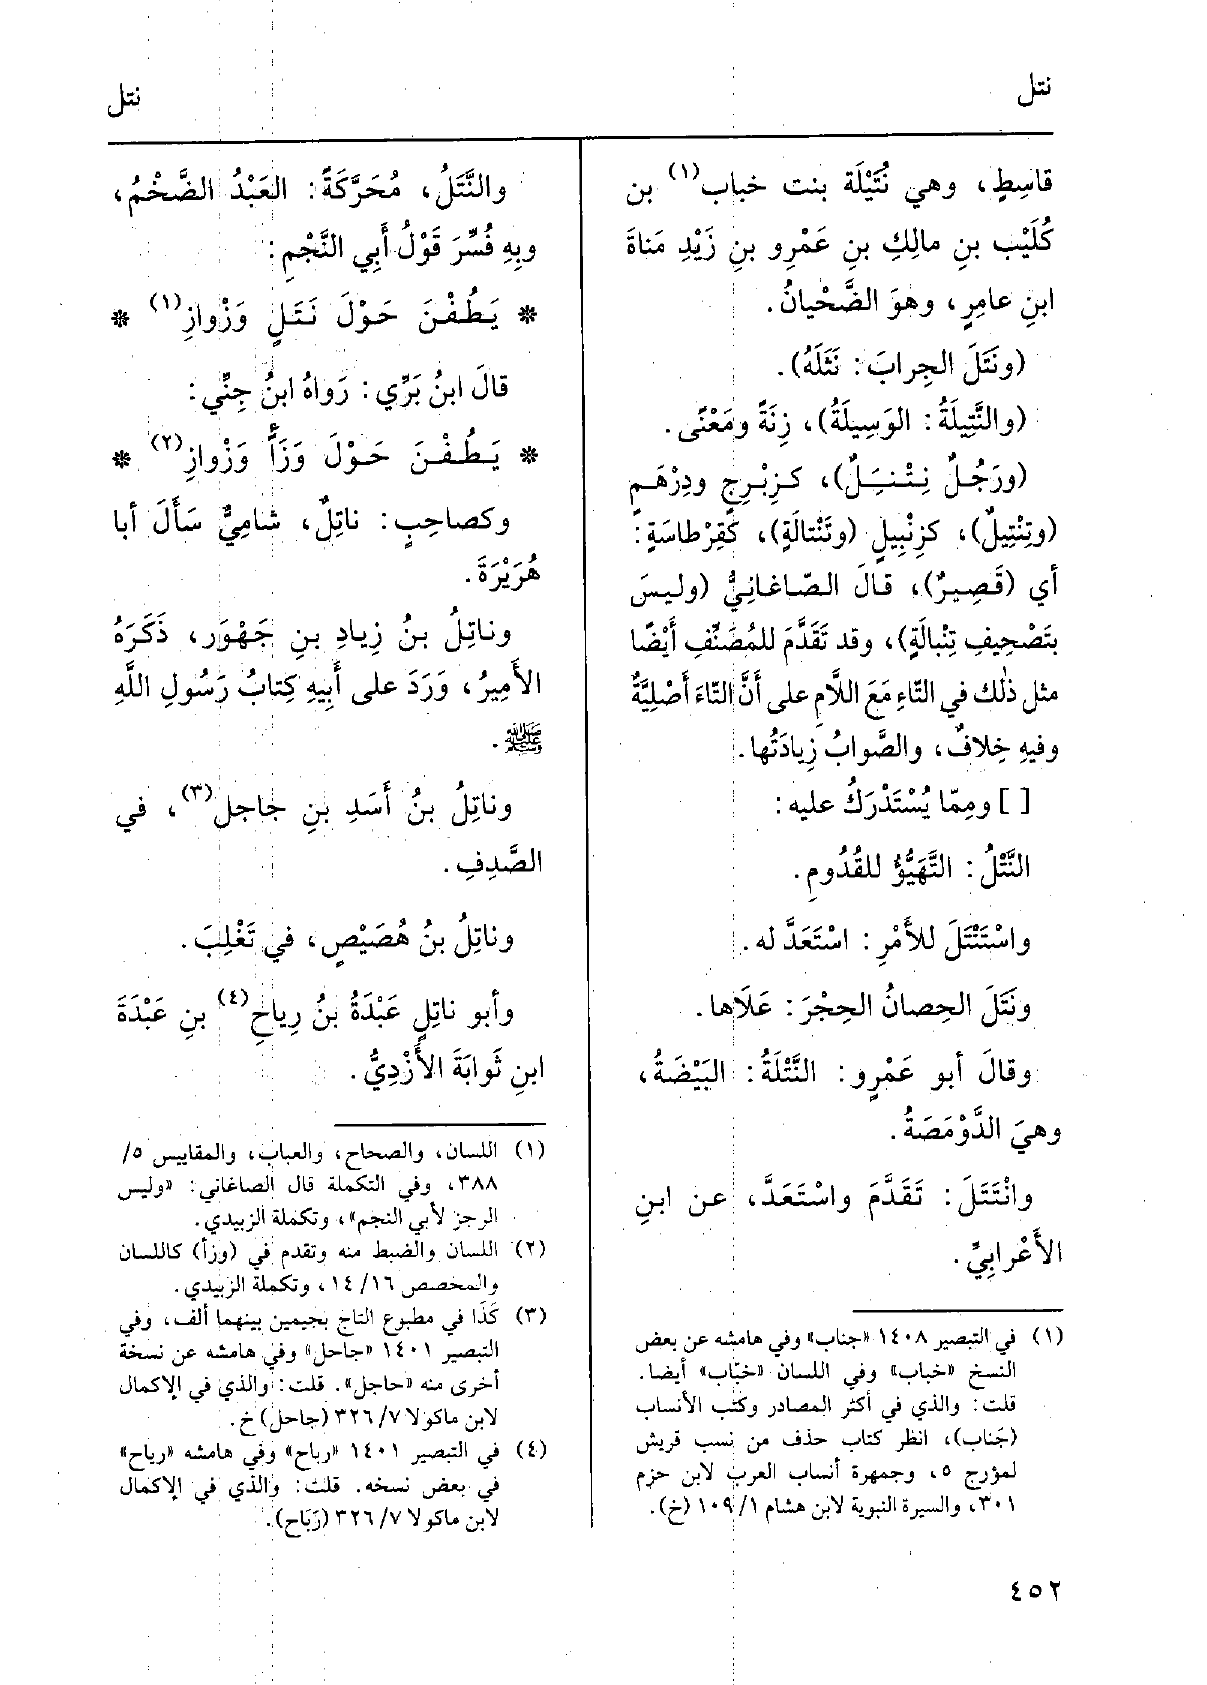 نتل
نتل
قاسِطٍ، وهي نُتَيْلَة بنت خباب(١) بن
كُلَيْبِ بنِ مالِكِ بنِ عَمْرِو بنِ زَيْدِ مَناةَ
ابنِ عامِرٍ، وهوَ الضَّحْيانُ.
(ونَتَلَ الجِرابَ: نَثَلَهُ).
(والنَّتِيلَةُ: الوَسِيلَةُ)، زِنَةً ومَعْنًى.
(ورَجُلٌ نِتْنِيَلٌ)، كزِبْرِجٍ ودِرْهَمٍ
(وتِنْتِيلٌ)، كزِنْبِيلٍ (وتَنْتالَةٍ)، كَقِرْطاسَةٍ:
أي (قَصِيرٌ)، قالَ الصّاغانِيُّ (وليسَ
بتَصْحِيفِ تِنْبالَةٍ)، وقد تَقَدَّمَ للمُصَنِّفِ أَيْضًا
مثل ذٰلك في التّاءِ مَعَ اللَّامِ على أَنَّ التّاءَ أَصْلِيَّةٌ
وفيهِ خِلافٌ، والصَّوابُ زِيادَتُها.
[ ] ومِمّا يُسْتَدْرَكُ عليه:
النَّتْلُ: التَّهَيُّؤُ للقُدُومِ.
واسْتَنْتَلَ للأَمْرِ: اسْتَعَدَّ له.
ونَتَلَ الحِصانُ الحِجْرَ: عَلَاها.
وقالَ أبو عَمْرٍو: النَّتْلَةُ: البَيْضَةُ،
وهيَ الدَّوْمَصَةُ.
وانْتَتَلَ: تَقَدَّمَ واسْتَعَدَّ، عن ابنِ
الأَعْرابِيِّ.
(١) في التبصير ١٤٠٨ «جناب» وفي هامشه عن بعض
النسخ «خباب» وفي اللسان «خبّاب» أيضا.
قلت: والذي في أكثر المصادر وكتب الأنساب
(جَناب)، انظر كتاب حذف من نسب قريش
لمؤرج ٥، وجمهرة أنساب العرب لابن حزم
٣٠١، والسيرة النبوية لابن هشام ١/ ١٠٩ (خ).
والنَّتَلُ، مُحَرَّكَةً: العَبْدُ الضَّخْمُ،
وبِهِ فُسِّرَ قَوْلُ أَبِي النَّجْمِ:
* يَطُفْنَ حَوْلَ نَتَلٍ وَزْوازِ(١) *
قالَ ابنُ بَرِّي: رَواهُ ابنُ جِنِّي:
* يَطُفْنَ حَوْلَ وَزَأٍ وَزْوازِ(٢) *
وكصاحِبٍ: ناتِلٌ، شامِيٌّ سَأَلَ أبا
هُرَيْرَةَ.
وناتِلُ بنُ زِيادِ بنِ جَهْوَر، ذَكَرَهُ
الأَمِيرُ، وَرَدَ على أَبِيهِ كِتابُ رَسُولِ اللَّهِ
ﷺ.
وناتِلُ بنُ أَسَدِ بنِ جاجل(٣)، في
الصَّدِفِ.
وناتِلُ بنُ هُصَيْصٍ، في تَغْلِبَ.
وأبو ناتِلٍ عَبْدَةُ بنُ رِياحِ(٤) بنِ عَبْدَةَ
ابنِ ثَوابَةَ الأَزْدِيُّ.
(١) اللسان، والصحاح، والعباب، والمقاييس ٥/
٣٨٨، وفي التكملة قال الصاغاني: «وليس
الرجز لأبي النجم»، وتكملة الزبيدي.
(٢) اللسان والضبط منه وتقدم في (وزأ) كاللسان
والمخصص ١٦/ ١٤، وتكملة الزبيدي.
(٣) كَذَا في مطبوع التاج بجيمين بينهما ألف، وفي
التبصير ١٤٠١ «جاحل» وفي هامشه عن نسخة
أخرى منه «حاجل». قلت: والذي في الإكمال
لابن ماكولا ٧/ ٣٢٦ (جاحل) خ.
(٤) في التبصير ١٤٠١ «رباح» وفي هامشه «رياح»
في بعض نسخه. قلت: والذي في الإكمال
لابن ماكولا ٧/ ٣٢٦ (رَبَاح).
٤٥٢